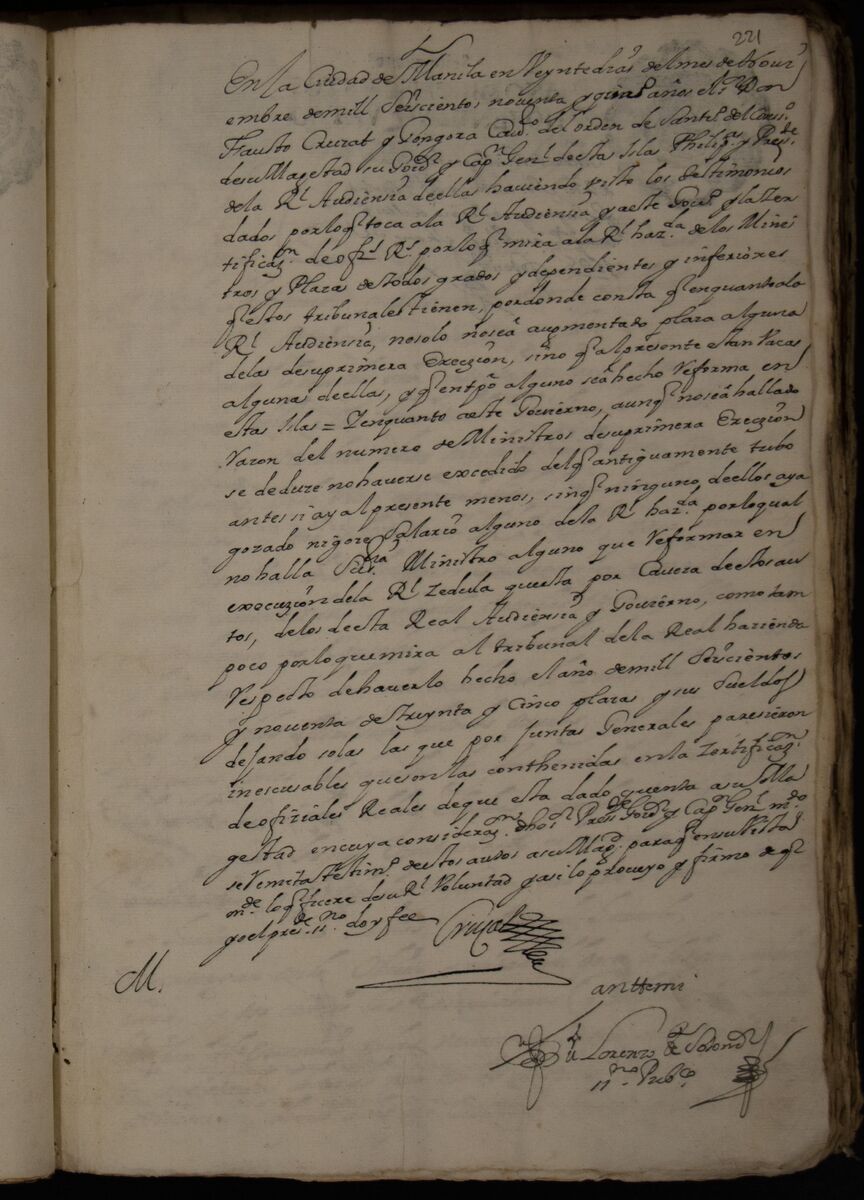 221
En la Ciudad de Manila en Veynte dias del mes de Novi
embre de mill Seiscientos noventa y años el S.r Don
Fausto Cruzat y Gongora Cav.ro del orden de Santi.o del Cons.o
de su Magestad su Gov.or y Cap.n Gen.l de esta Isla Philip.s y Pres.te
de la R.l Audiensia de ellas haviendo visto los testimonios
dados por lo q.e toca a la R.l Audiensia y a este Gov.no y la Zer
tificaz.n de ofi.s R.s por lo q.e mira a la R.l haz.da de los Minis
tros y Plazas de todos grados y dependientes y inferiores
q.e estos tribunales tienen, por donde consta q.e en quanto a la
R.l Audiensia, no solo no se a augmentado plaza alguna
de las de su primera Erezion, sino q.e al presente estan Vacas
algunas de ellas, y q.e en tpo alguno se a hecho Reforma en
estas Islas = Y en quanto a este Govierno, aunq.e no se a hallado
Razon del numero de Ministros de su primera Erezion
se deduze no haverse excedido del q.e antiguamente tubo
antes si ay al presente menos, sin q.e ninguno de ellos aya
gozado ni goze salario alguno de la R.l haz.da por lo qual
no halla Su S.ria Ministro alguno que Reformar en
execuzion de la R.l Zedula puesta por Caveza de estos au
tos, de los de esta Real Audiensia y Govierno, como tam
poco por lo que mira al tribunal de la Real hazienda
Respecto de haverlo hecho el año de mill Seiscientos
y noventa de treynta y Cinco plazas y sus Sueldos
dejando solas las que por Juntas Generales paresieron
inescusables que son las conthenidas en la Zertificaz.n
de ofiziales Reales de que esta dado quenta a su Ma
gestad en cuya consideraz.n dho S.r Pres.te Gov.or y Cap.n Gen.l m.do
se Remita testim.o de estos autos a su Mag.d para q.e en su Vista
m.de lo q.e fuere de su R.l Voluntad y asi lo proveyo y firmo de q.e
yo el pres.te ss.no doy fee
Cruzat
M.
anttemi
Lorenzo
ss.no Pub.co